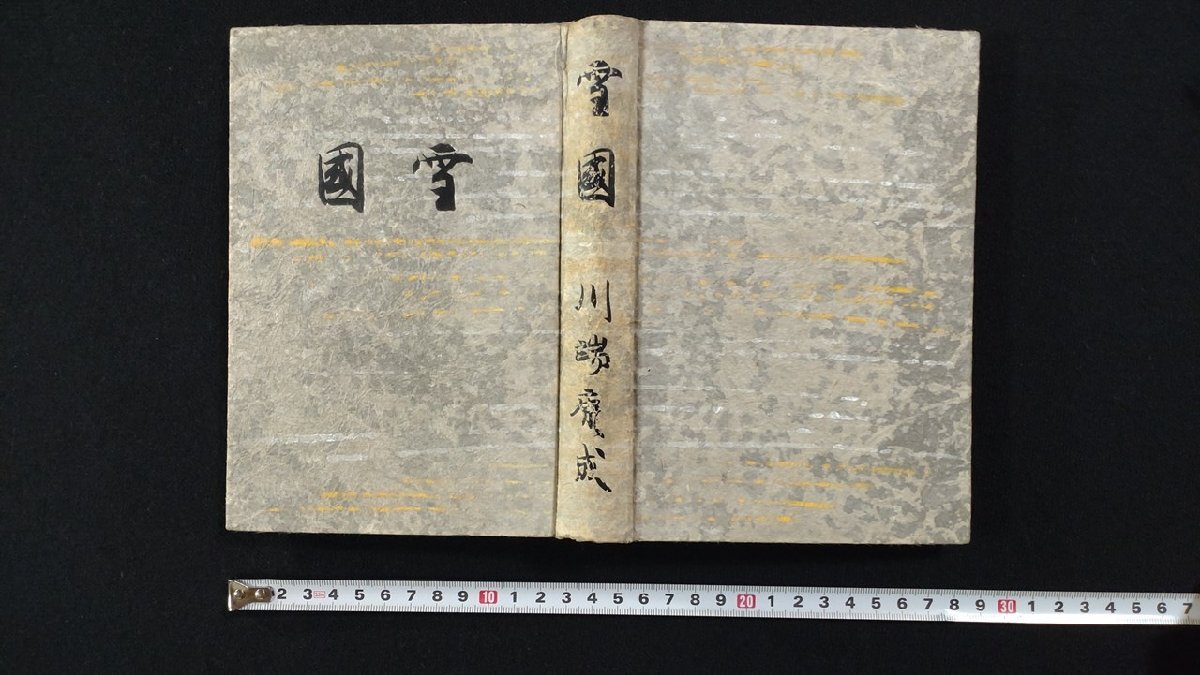 國雪
雪國 川端康成
2 3 4 5 6 7 8 9 10 1 2 3 4 5 6 7 8 9 20 1 2 3 4 5 6 7 8 9 30 1 2 3 4 5 6 7